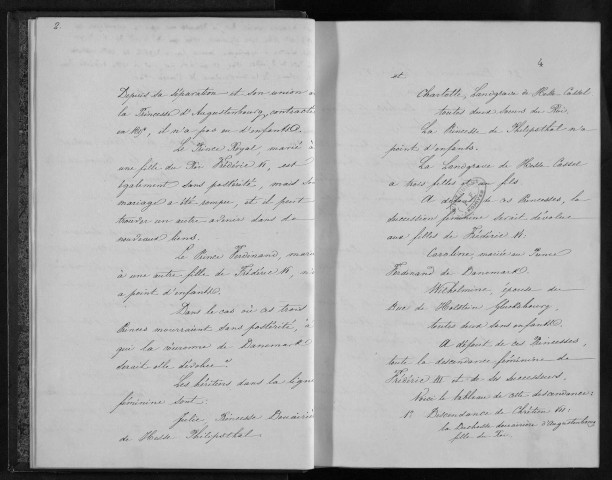 2.
Depuis sa séparation et son union à
la Princesse d'Augustenbourg, contractée
en 1815, il n'a pas eu d'enfants.
Le Prince Royal, marié à
une fille du Roi Frédéric VI, est
également sans postérité, mais son
mariage a été rompu, et il peut
trouver un autre avenir dans de
nouveaux liens.
Le Prince Ferdinand, marié
à une autre fille de Frédéric VI, n'a
a point d'enfants.
Dans le cas où ces trois
Princes mourraient sans postérité, à
qui la couronne de Danemark
serait elle dévolue?
Les héritiers dans la ligne
féminine sont:
Julie, Princesse Douairière
de Hesse Philipsthal
4
et
Charlotte, Landgrave de Hesse Cassel
toutes deux sœurs du Roi.
La Princesse de Philipsthal n'a
point d'enfants.
La Landgrave de Hesse Cassel
a trois filles et un fils
A défaut de ces Princesses, la
succession féminine serait dévolue
aux filles de Frédéric VI:
Caroline, mariée au Prince
Ferdinand de Danemark
Wilhelmine, épouse du
Duc de Holstein Glucksbourg,
toutes deux sans enfants.
A défaut de ces Princesses,
toute la descendance féminine de
Frédéric III et de ses successeurs.
Voici le tableau de cette descendance:
1º Descendance de Chrétien VII:
la Duchesse douairière d'Augustenbourg
fille du Roi.